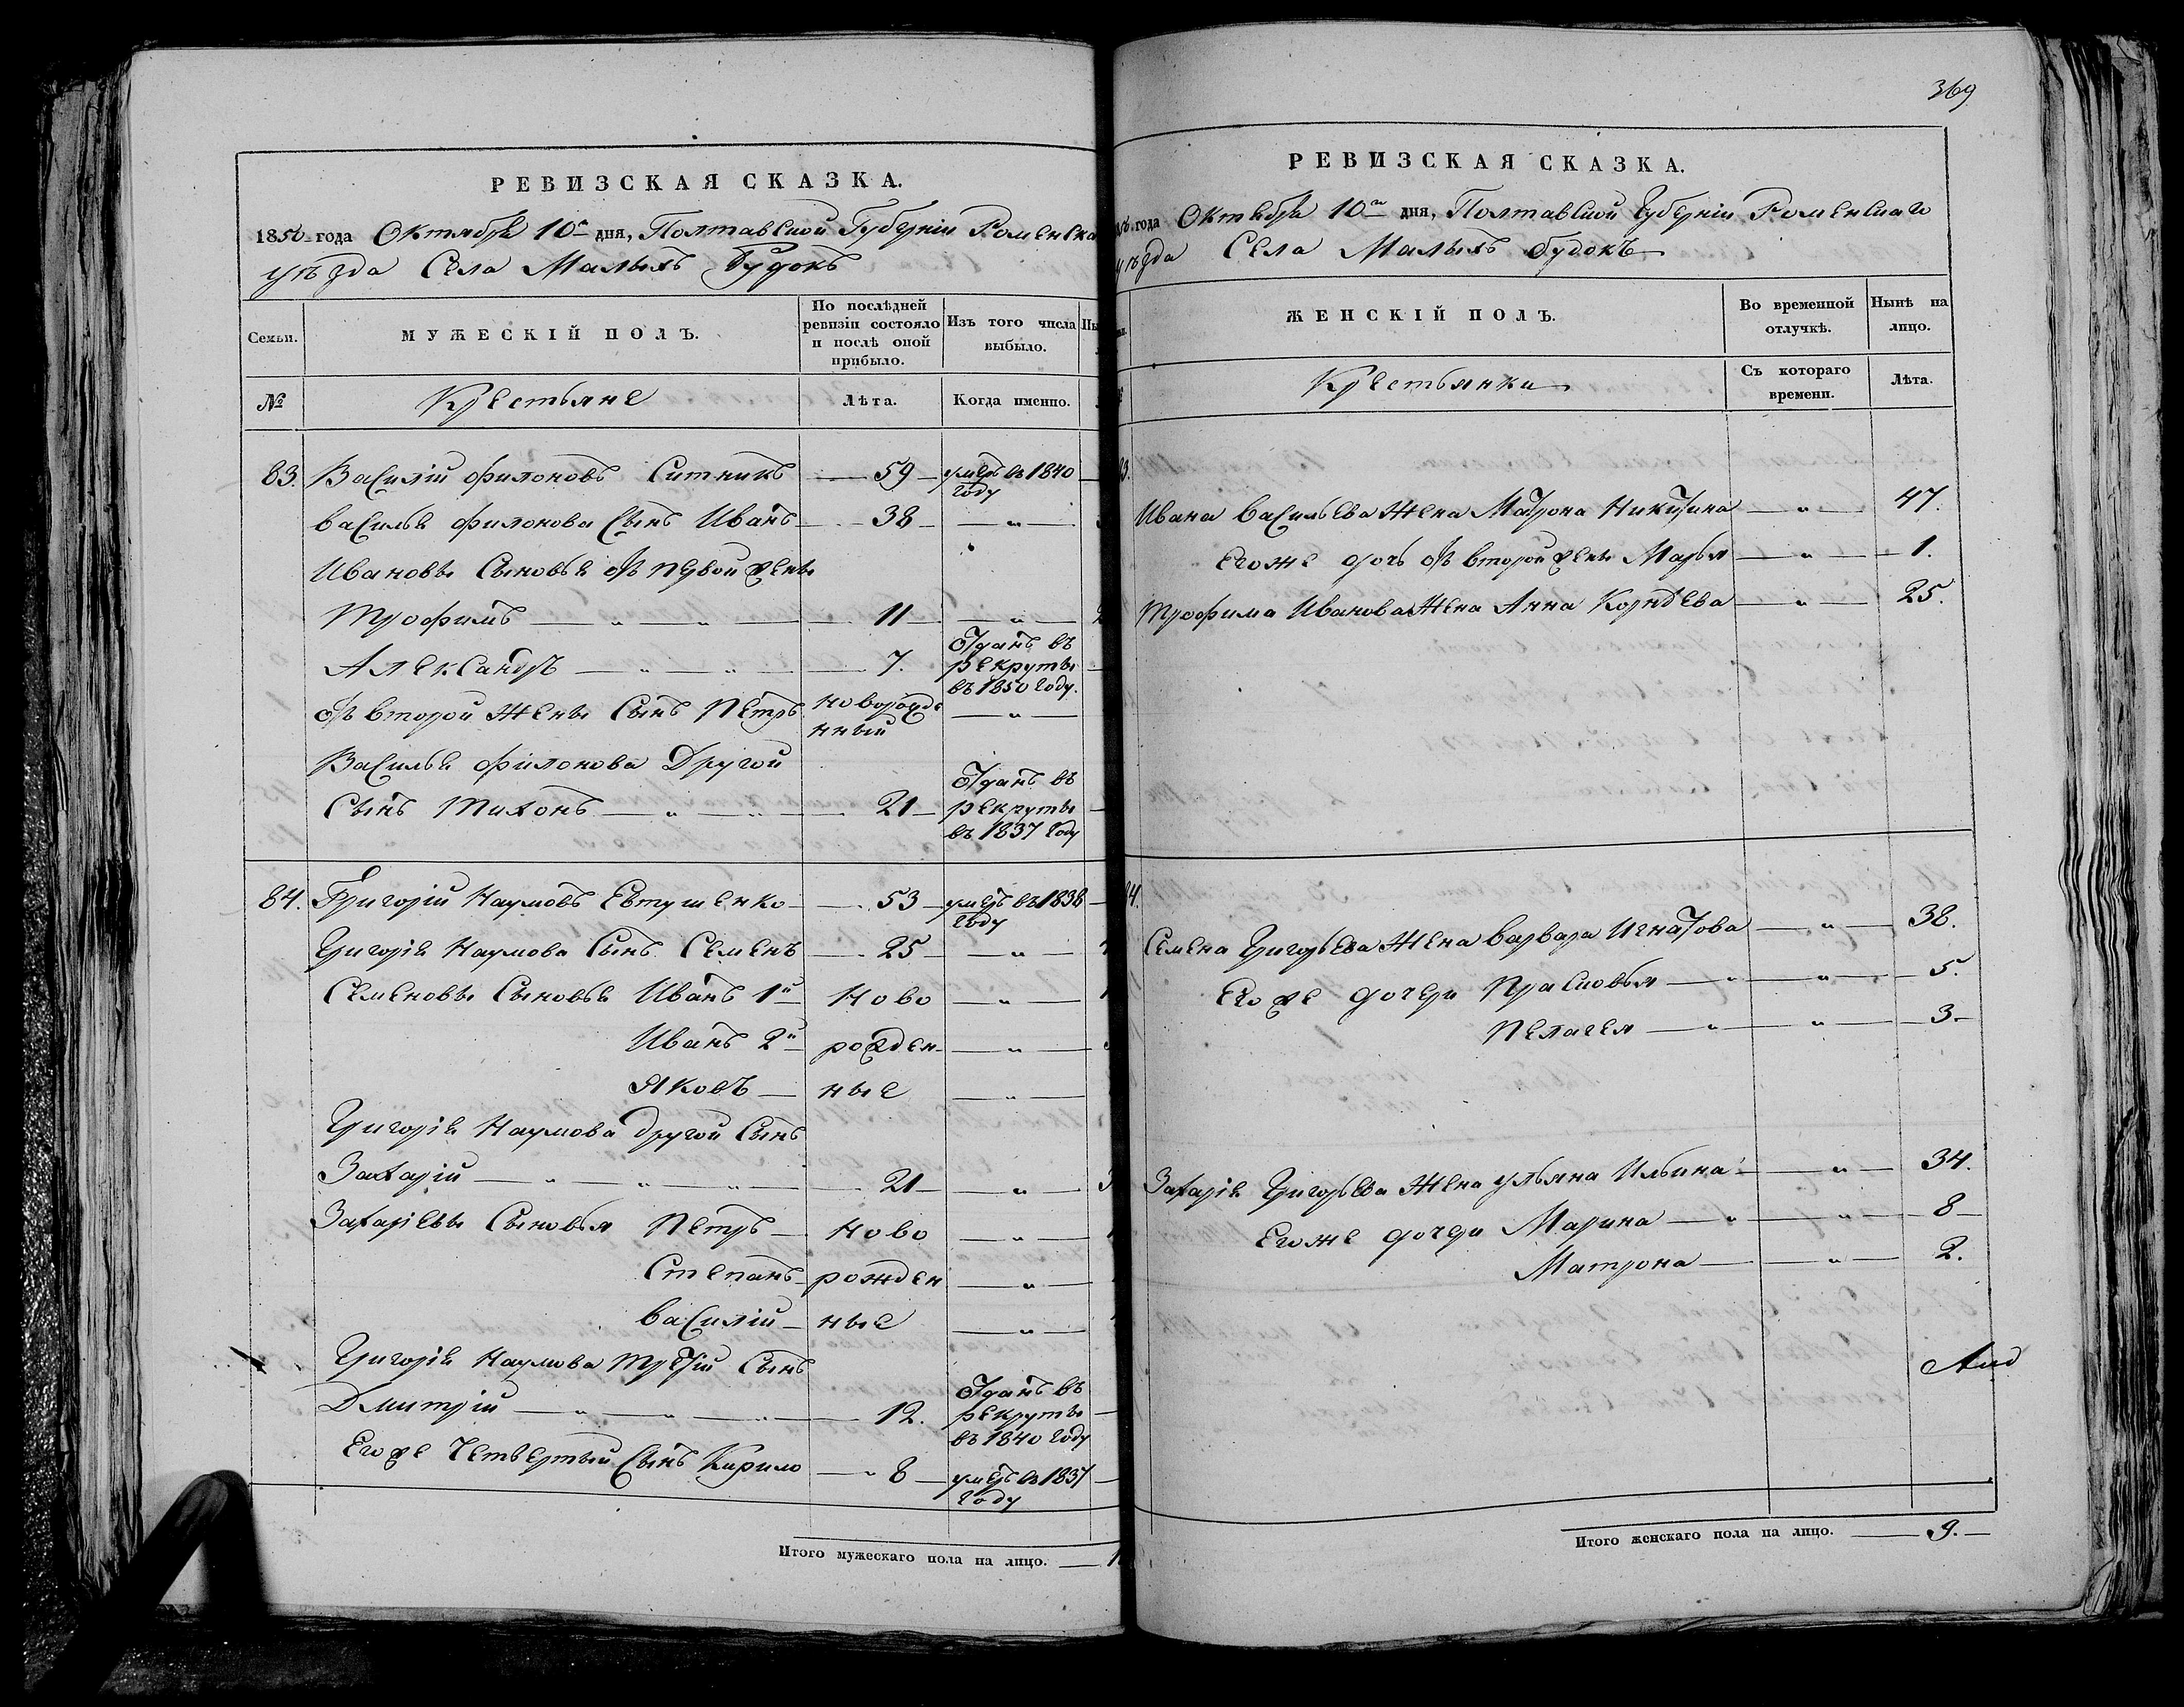 РЕВИЗСКАЯ СКАЗКА.
1850 года Октября 10го дня, Полтавской Губерніи Роменска
уѣзда Села Малыхъ Будокъ
Семьи.
МУЖЕСКІЙ ПОЛЪ.
По послѣдней ревизіи состояло и послѣ оной прибыло.
Изъ того числа выбыло.
№
Крестьяне
Лѣта.
Когда именно.
83. Василій Филоновъ Ситникъ 59 умеръ въ 1840 году
Василья Филонова Сынъ Иванъ 38 "
Ивановы Сыновья отъ первой жены
Трофимъ " " 11 "
Александръ " " 7. Отданъ въ рекруты въ 1850 году.
отъ второй жены Сынъ Петръ новорожденный "
Василья Филонова Другой
Сынъ Тихонъ " " 21 Отданъ въ рекруты въ 1837 году
84. Григорій Наумовъ Евтушенко 53 умеръ въ 1838 году
Григорія Наумова Сынъ Семенъ 25 "
Семеновы Сыновья Иванъ 1й Ново "
Иванъ 2й рожден "
Яковъ ные "
Григорія Наумова другой Сынъ
Захарій " " " 21 "
Захаріевы Сыновья Петръ Ново "
Степанъ рожден "
Василій ные "
Григорія Наумова третій Сынъ
Дмитрій " " " 12. Отданъ въ рекруты въ 1840 году
Его же Четвертый Сынъ Кирило " 8 умеръ въ 1837 году
Итого мужескаго пола на лицо.
369
РЕВИЗСКАЯ СКАЗКА.
года Октября 10го дня, Полтавской Губерніи Роменскаго
уѣзда Села Малыхъ Будокъ
ЖЕНСКІЙ ПОЛЪ.
Во временной отлучкѣ.
Нынѣ на лицо.
Крестьянки
Съ котораго времени.
Лѣта.
Ивана Васильева Жена Матрона Никитина " 47.
Его же дочь отъ второй жены Марья " 1.
Трофима Иванова Жена Анна Корнѣева " 25.
Семена Григорьева Жена Варвара Игнатова " 38.
Его же дочери Прасковья " " 5.
Пелагея " " 3.
Захарія Григорьева Жена Ульяна Ильина " 34.
Его же дочери Марина " " 8
Матрона " 2.
Итого женскаго пола на лицо. 9.